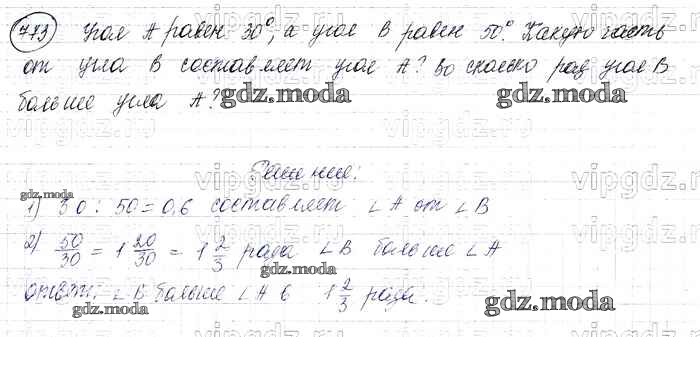 773 Угол А равен 30°, а угол В равен 50°. Какую часть
от угла В составляет угол А? Во сколько раз угол В
больше угла А?
gdz.moda
gdz.moda
vipgdz.ru
vipgdz.ru
vipgdz.ru
Решение:
gdz.moda
1) 30 : 50 = 0,6 составляет ∠A от ∠B
2) 50/30 = 1 20/30 = 1 2/3 раза ∠B больше ∠A
gdz.moda
ответ: ∠B больше ∠A в 1 2/3 раза.
gdz.moda
gdz.moda